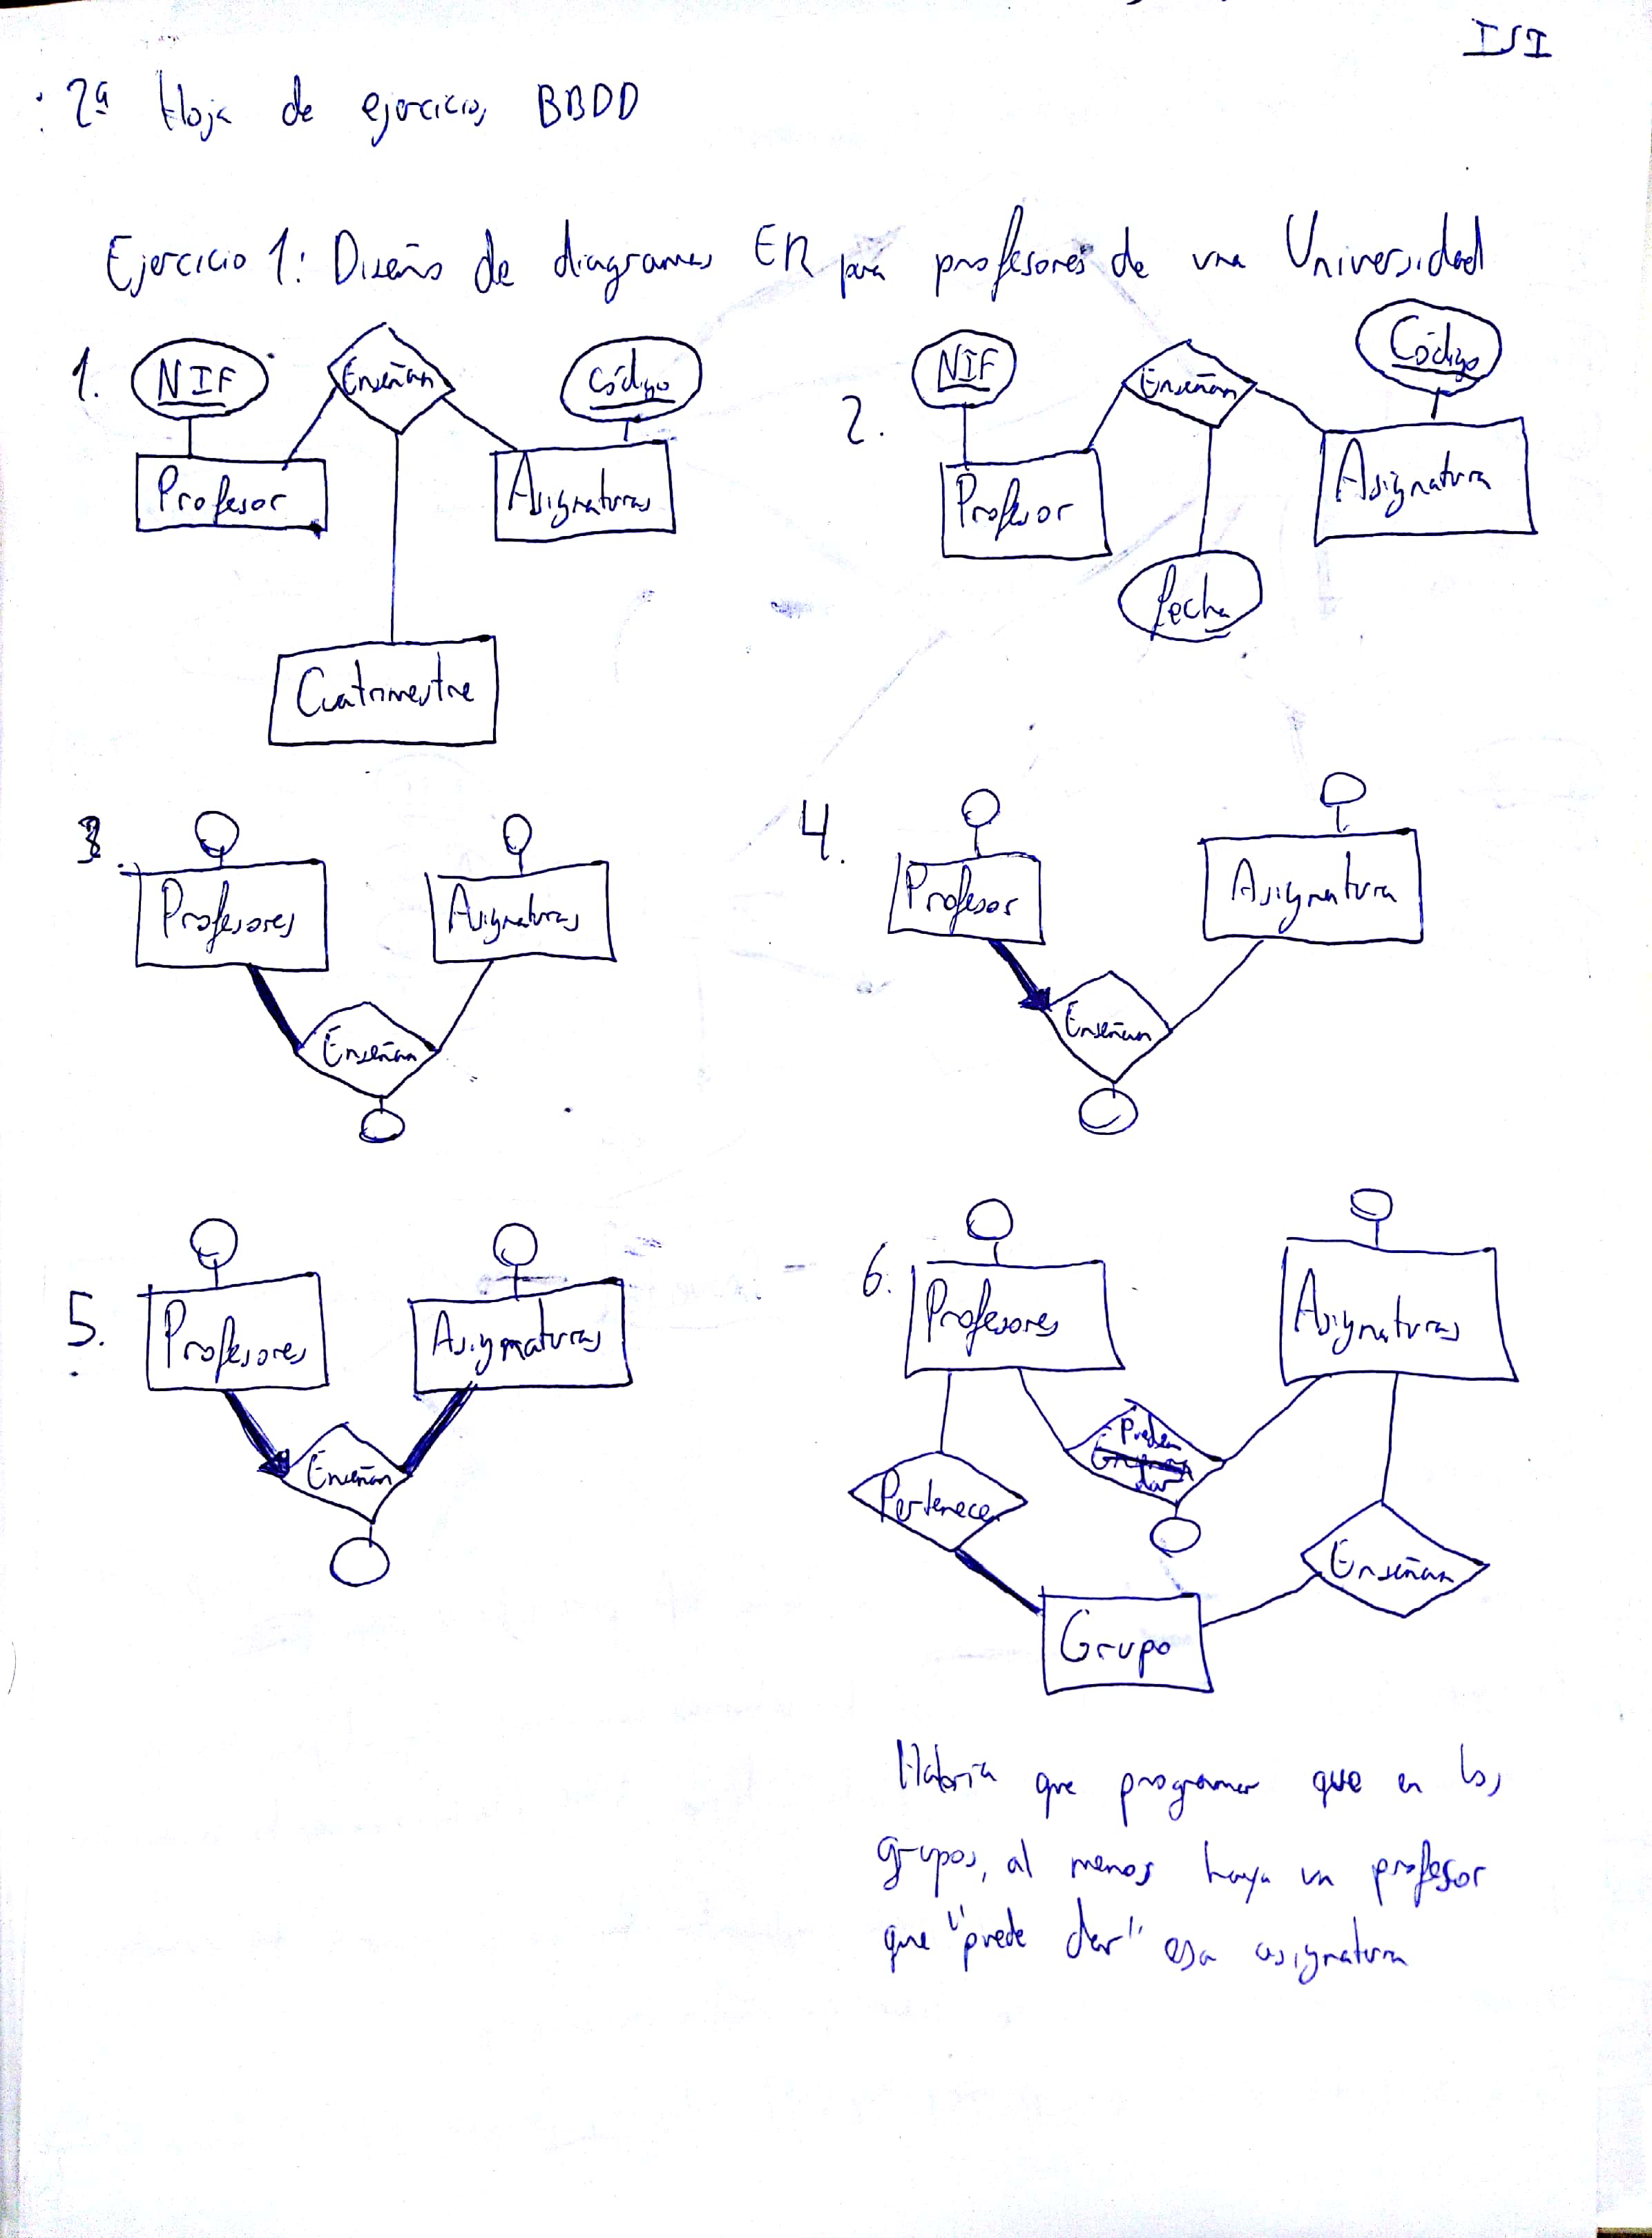 ISI
2ª Hoja de ejercicios BBDD
Ejercicio 1: Diseño de diagramas ER para profesores de una Universidad
1.
NIF
Enseñan
Código
Profesor
Asignaturas
Cuatrimestre
2.
NIF
Enseñan
Código
Profesor
Asignatura
fecha
3.
Profesores
Asignaturas
Enseñan
4.
Profesor
Asignatura
Enseñan
5.
Profesores
Asignaturas
Enseñan
6.
Profesores
Asignaturas
Pueden
dar
Pertenecen
Enseñan
Grupo
Habría que programar que en los
grupos, al menos haya un profesor
que "puede dar" esa asignatura